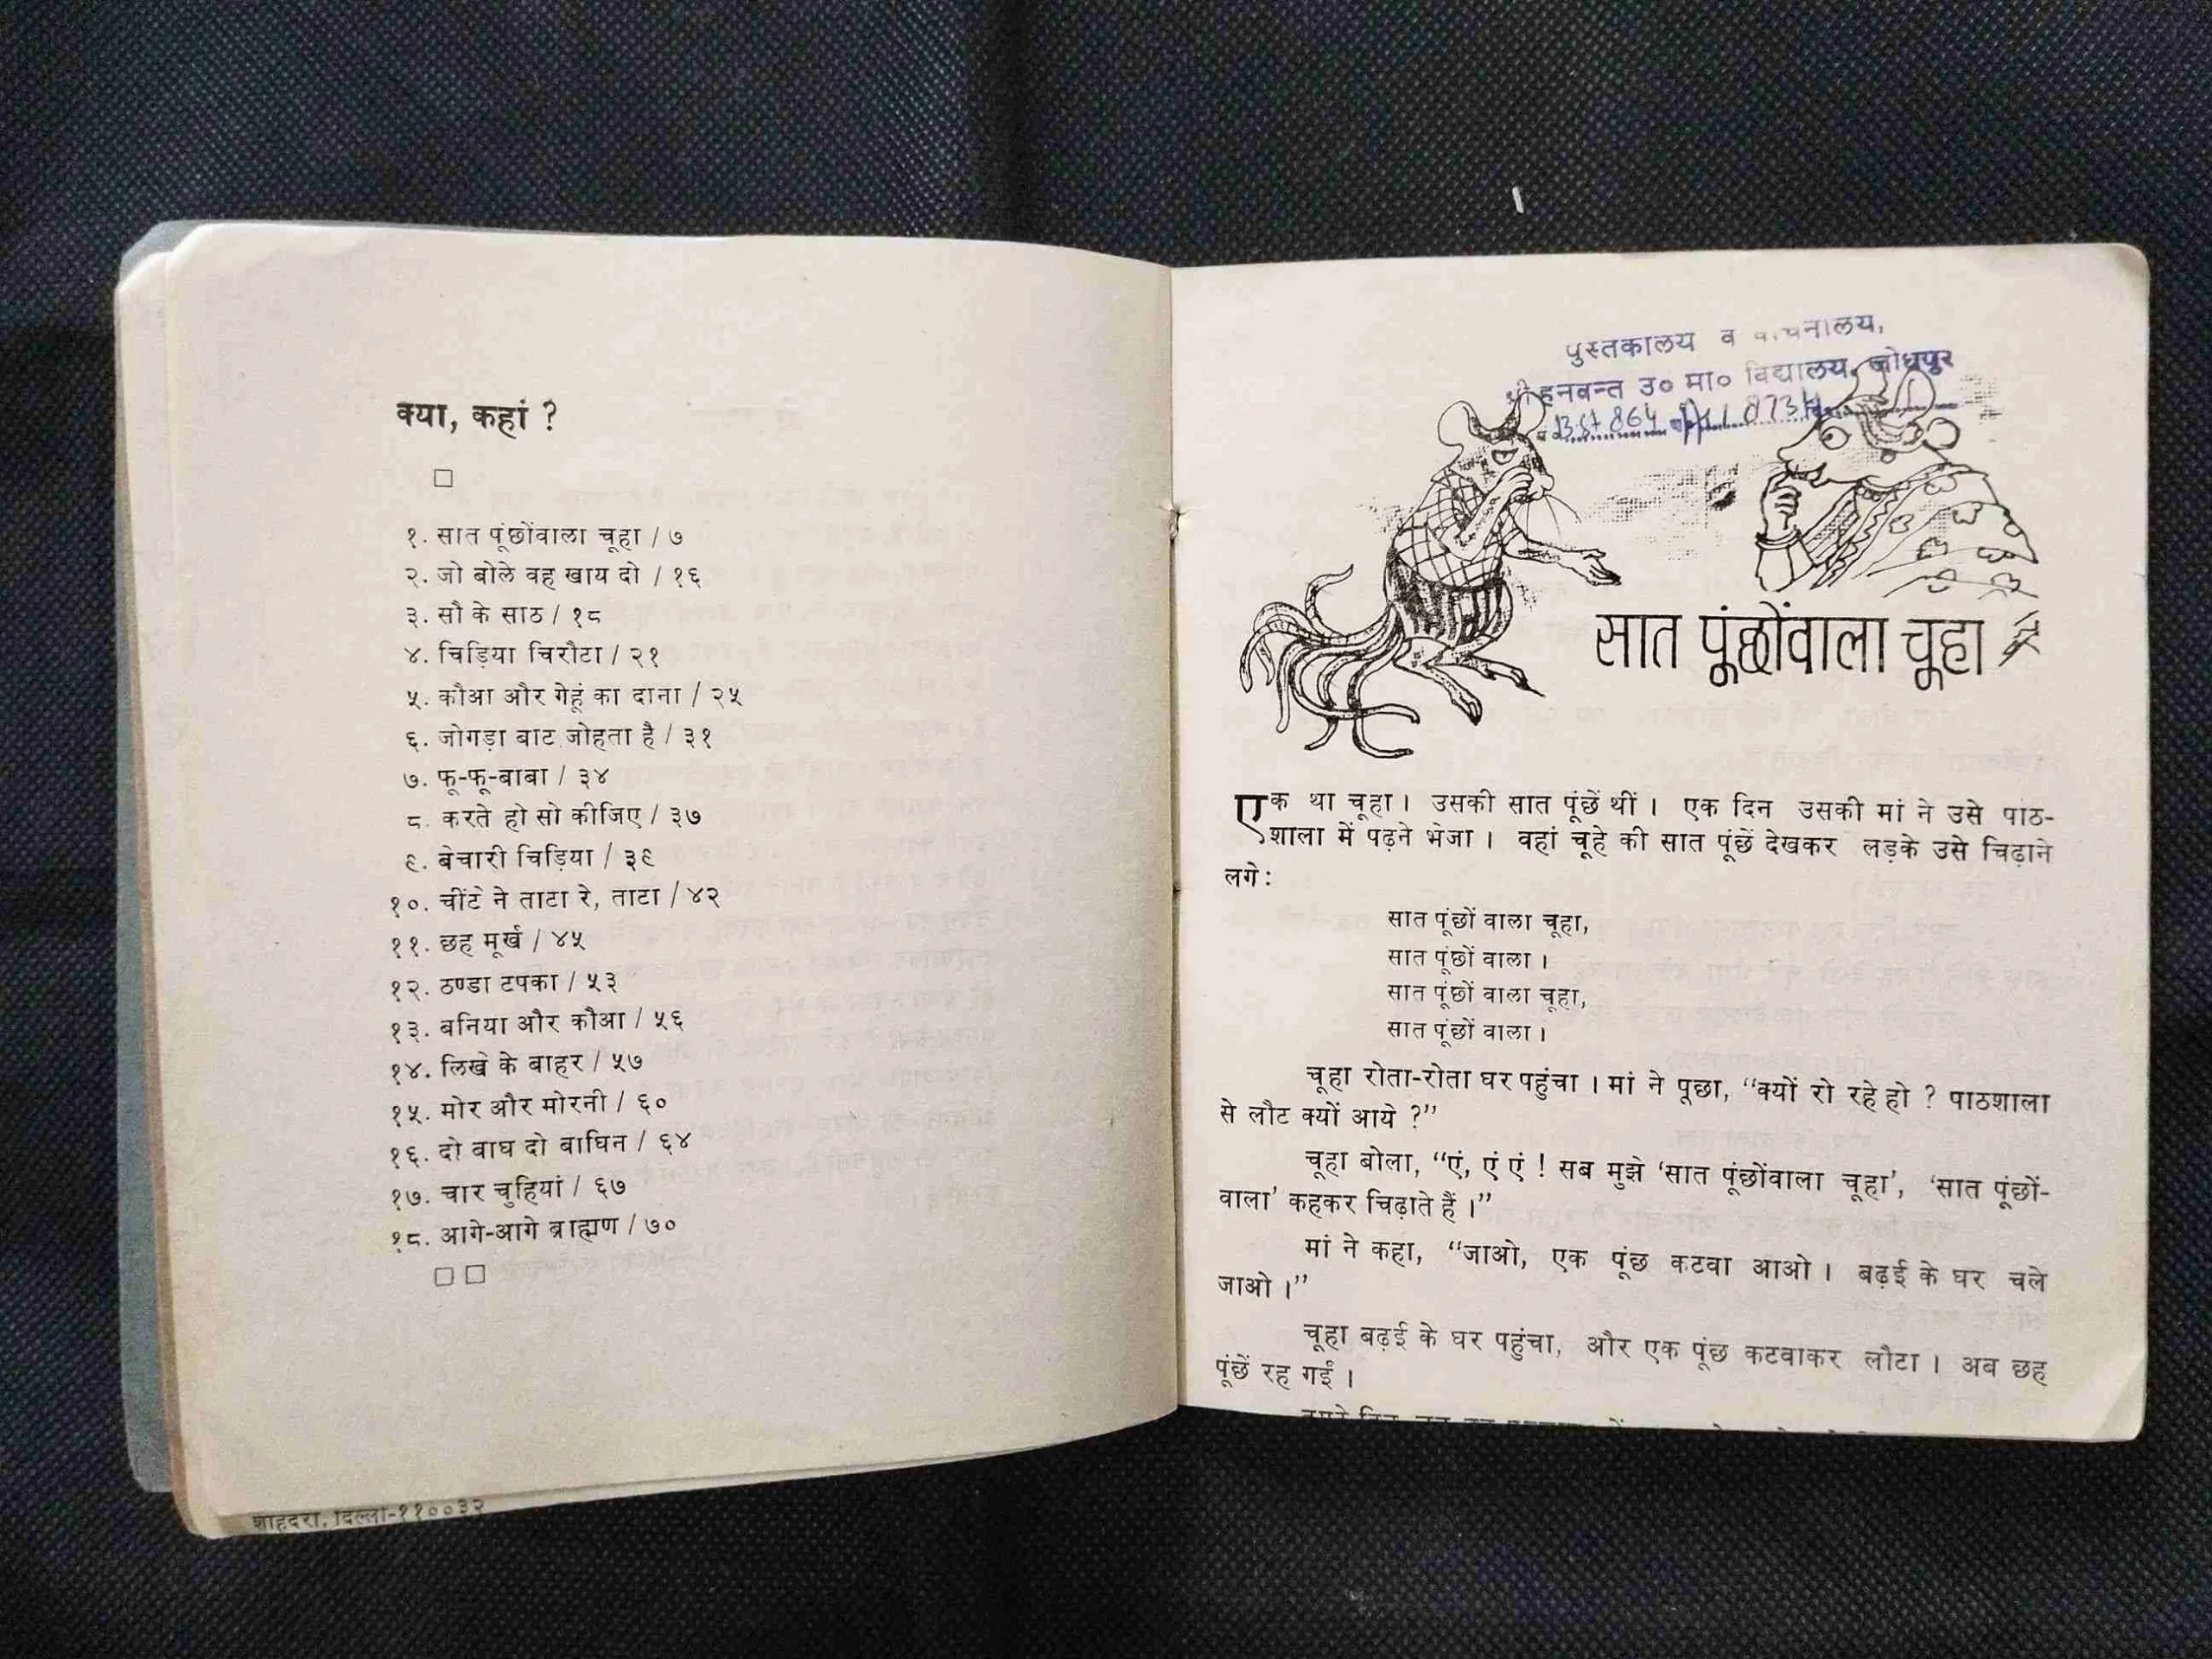 क्या, कहां ?
१. सात पूंछोंवाला चूहा / ७
२. जो बोले वह खाय दो / १६
३. सौ के साठ / १८
४. चिड़िया चिरौटा / २१
५. कौआ और गेहूं का दाना / २५
६. जोगड़ा बाट जोहता है / ३१
७. फू-फू-बाबा / ३४
८. करते हो सो कीजिए / ३७
९. बेचारी चिड़िया / ३९
१०. चींटे ने ताटा रे, ताटा / ४२
११. छह मूर्ख / ४५
१२. ठण्डा टपका / ५३
१३. बनिया और कौआ / ५६
१४. लिखे के बाहर / ५७
१५. मोर और मोरनी / ६०
१६. दो बाघ दो बाघिन / ६४
१७. चार चुहियां / ६७
१८. आगे-आगे ब्राह्मण / ७०
शाहदरा, दिल्ली-११००३२
पुस्तकालय व वाचनालय,
श्री हनवन्त उ० मा० विद्यालय, जोधपुर
सात पूंछोंवाला चूहा
एक था चूहा। उसकी सात पूंछें थीं। एक दिन उसकी मां ने उसे पाठ-
शाला में पढ़ने भेजा। वहां चूहे की सात पूंछें देखकर लड़के उसे चिढ़ाने
लगे:
सात पूंछों वाला चूहा,
सात पूंछों वाला।
सात पूंछों वाला चूहा,
सात पूंछों वाला।
चूहा रोता-रोता घर पहुंचा। मां ने पूछा, “क्यों रो रहे हो ? पाठशाला
से लौट क्यों आये ?”
चूहा बोला, “एं, एं एं ! सब मुझे ‘सात पूंछोंवाला चूहा’, ‘सात पूंछों-
वाला’ कहकर चिढ़ाते हैं।”
मां ने कहा, “जाओ, एक पूंछ कटवा आओ। बढ़ई के घर चले
जाओ।”
चूहा बढ़ई के घर पहुंचा, और एक पूंछ कटवाकर लौटा। अब छह
पूंछें रह गईं।